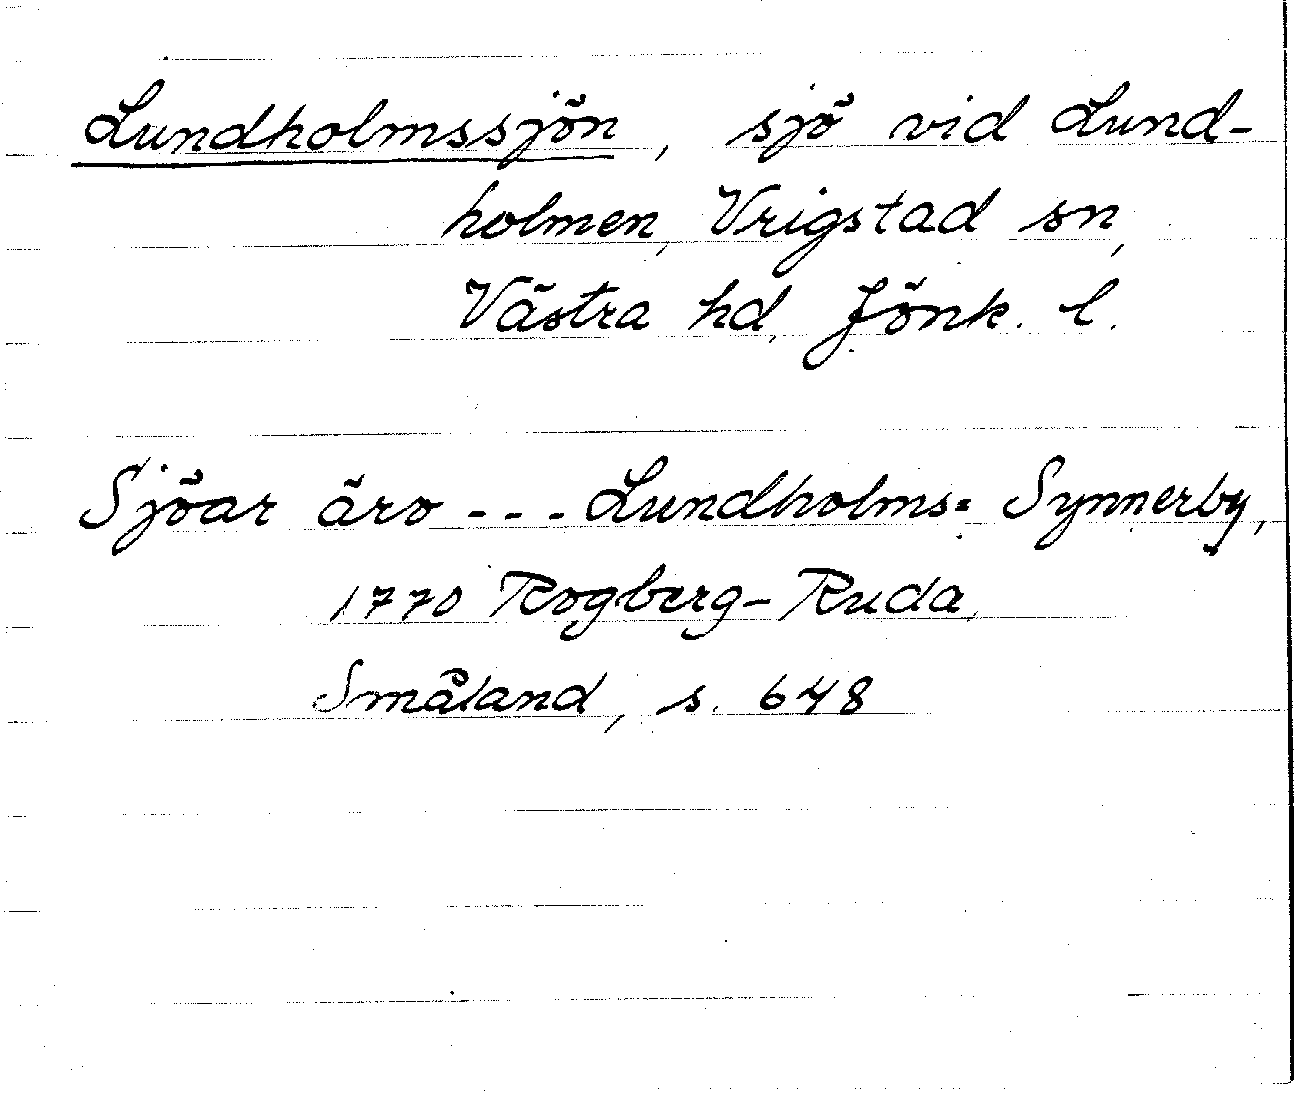 Lundholmssjön, sjö vid Lund-
holmen, Vrigstad sn,
Västra hd, Jönk. l.
Sjöar äro --- Lundholms= Synnerby,
1770 Rogberg-Ruda,
Småland, s. 648